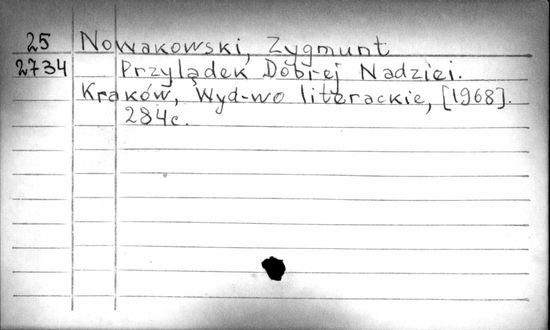 25 Nowakowski, Zygmunt
2734 Przylądek Dobrej Nadziei.
Kraków, Wyd-wo literackie, [1968].
284c.